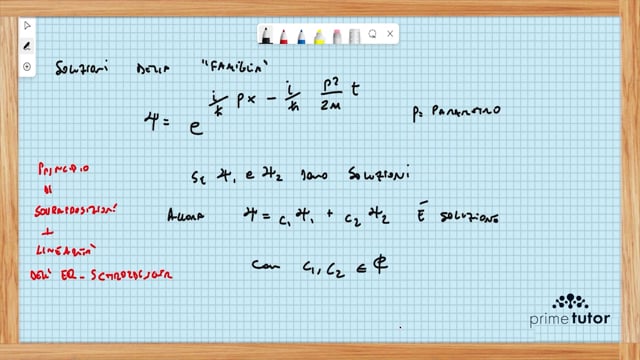 SOLUZIONI DELLA "FAMIGLIA"
Ψ = e^{i/ħ px - i/ħ p²/2m t}
p = PARAMETRO
SE Ψ₁ e Ψ₂ SONO SOLUZIONI
ALLORA Ψ = c₁Ψ₁ + c₂Ψ₂ È SOLUZIONE
CON c₁, c₂ ∈ ℂ
PRINCIPIO
DI
SOVRAPPOSIZIONE
LINEARITÀ
DELL'EQ. SCHROEDINGER
prime tutor